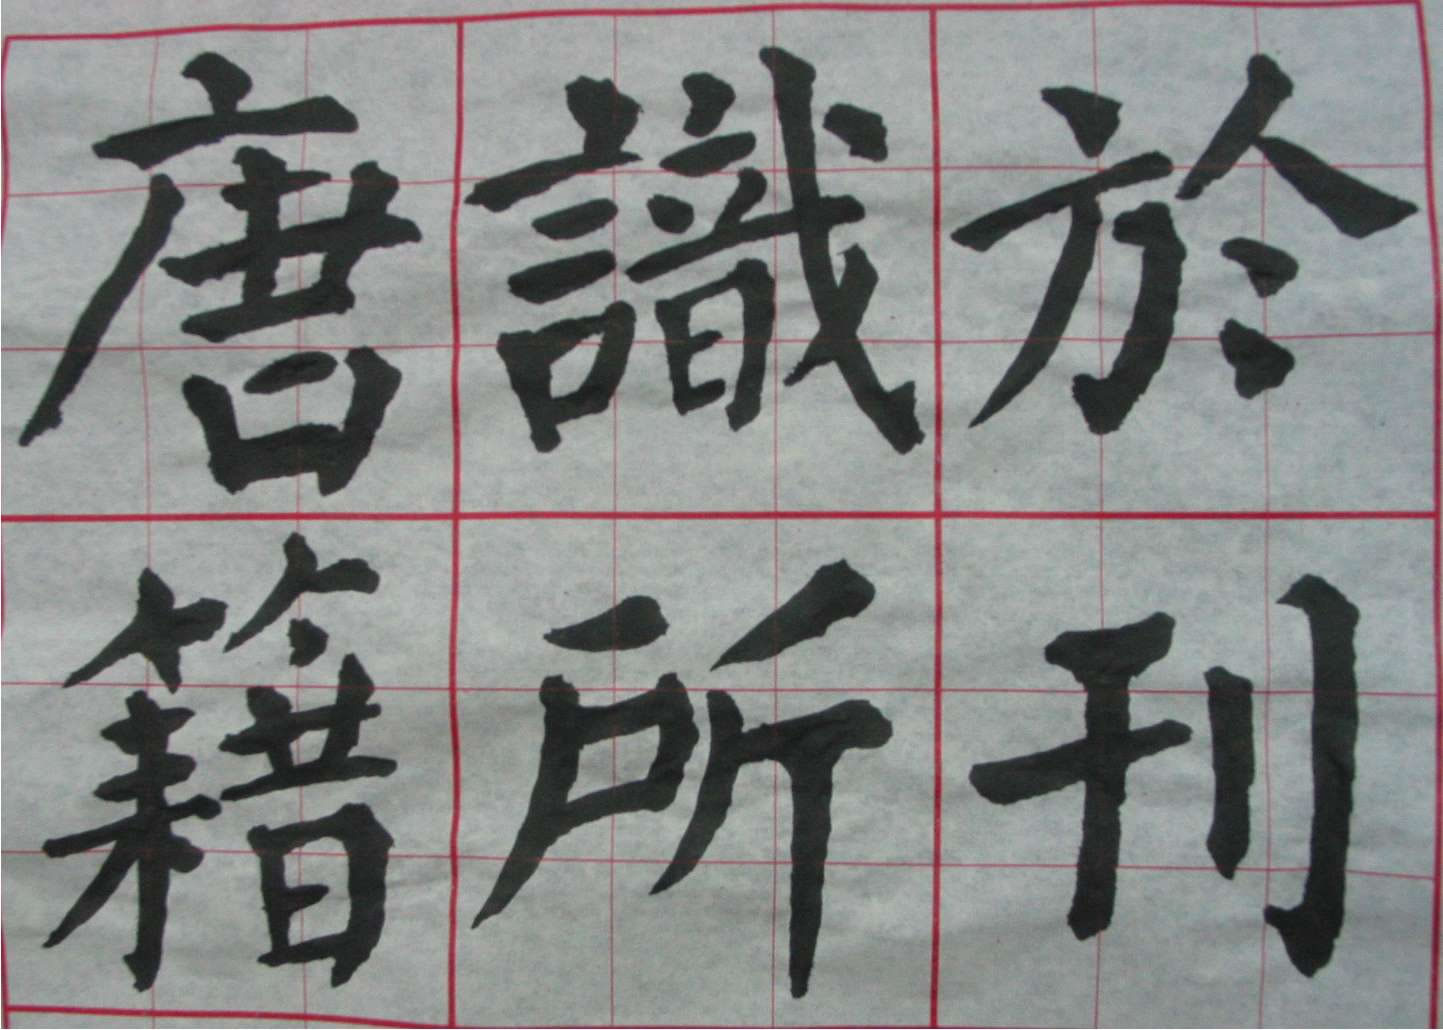 唐識於
籍所刊